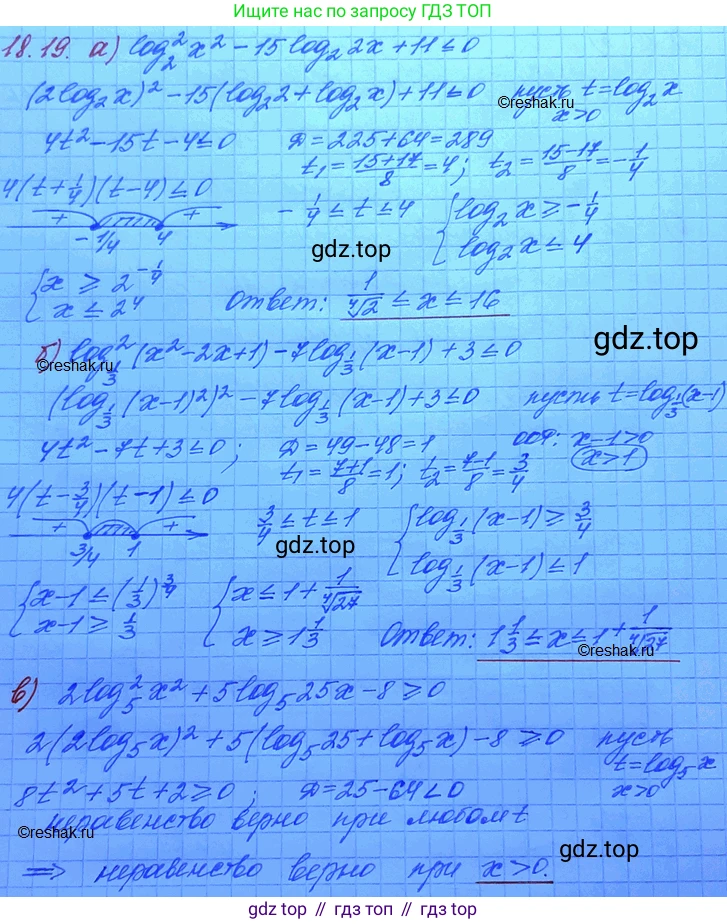 Ищите нас по запросу ГДЗ ТОП
18.19. а) log₂² x² − 15 log₂ 2x + 11 ≤ 0
(2log₂x)² − 15(log₂2 + log₂x) + 11 ≤ 0 пусть t = log₂x
©reshak.ru
x>0
4t² − 15t − 4 ≤ 0 D = 225 + 64 = 289
t₁ = (15+17)/8 = 4; t₂ = (15−17)/8 = −1/4
4(t + 1/4)(t − 4) ≤ 0
+ + −1/4 4
−1/4 ≤ t ≤ 4 { log₂x ≥ −1/4
log₂x ≤ 4
gdz.top
{ x ≥ 2^(−1/4)
x ≤ 2⁴
Ответ: 1/⁴√2 ≤ x ≤ 16
gdz.top
б) log²_(1/3) (x² − 2x + 1) − 7log_(1/3) (x−1) + 3 ≤ 0
©reshak.ru
(log_(1/3) (x−1)²)² − 7log_(1/3) (x−1) + 3 ≤ 0 пусть t = log_(1/3)(x−1)
4t² − 7t + 3 ≤ 0; D = 49 − 48 = 1 ООФ: x−1>0
t₁ = (7+1)/8 = 1; t₂ = (7−1)/8 = 3/4 x>1
4(t − 3/4)(t − 1) ≤ 0
+ + 3/4 1
3/4 ≤ t ≤ 1 { log_(1/3) (x−1) ≥ 3/4
log_(1/3) (x−1) ≤ 1
gdz.top
{ x−1 ≤ (1/3)^(3/4)
x−1 ≥ 1/3
{ x ≤ 1 + 1/⁴√27
x ≥ 1 1/3
Ответ: 1 1/3 ≤ x ≤ 1 + 1/⁴√27
©reshak.ru
в) 2log₅² x² + 5log₅ 25x − 8 ≥ 0
2(2log₅x)² + 5(log₅25 + log₅x) − 8 ≥ 0 пусть
t = log₅x
8t² + 5t + 2 ≥ 0; D = 25 − 64 < 0 x>0
неравенство верно при любом t
©reshak.ru
⇒ неравенство верно при x>0.
gdz.top
gdz top // гдз топ // gdz.top